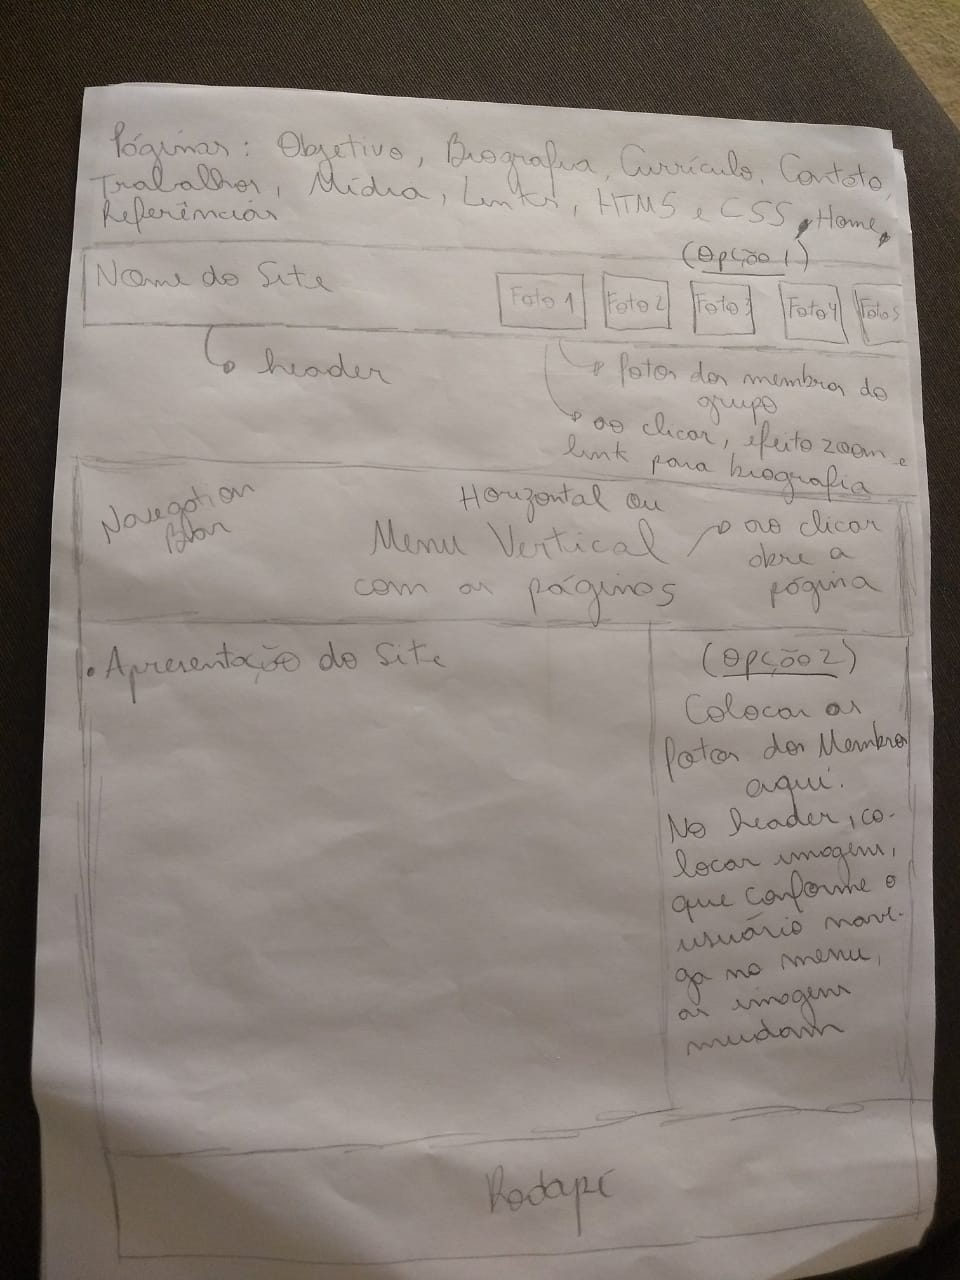 Páginas: Objetivo, Biografia, Currículo, Contato,
Trabalhos, Mídia, Links, HTM5 e CSS, Home,
Referências
(Opção 1)
Nome do Site
Foto 1 Foto 2 Foto 3 Foto 4 Foto 5
header
fotos dos membros do
grupo
ao clicar, efeito zoom e
link para biografia
Navegation
Bar
Horizontal ou
Menu Vertical
com as páginas
ao clicar
abre a
página
• Apresentação do Site
(Opção 2)
Colocar as
fotos dos Membros
aqui.
No header, co-
locar imagem,
que conforme o
usuário nave-
ga no menu,
as imagens
mudam
Rodapé